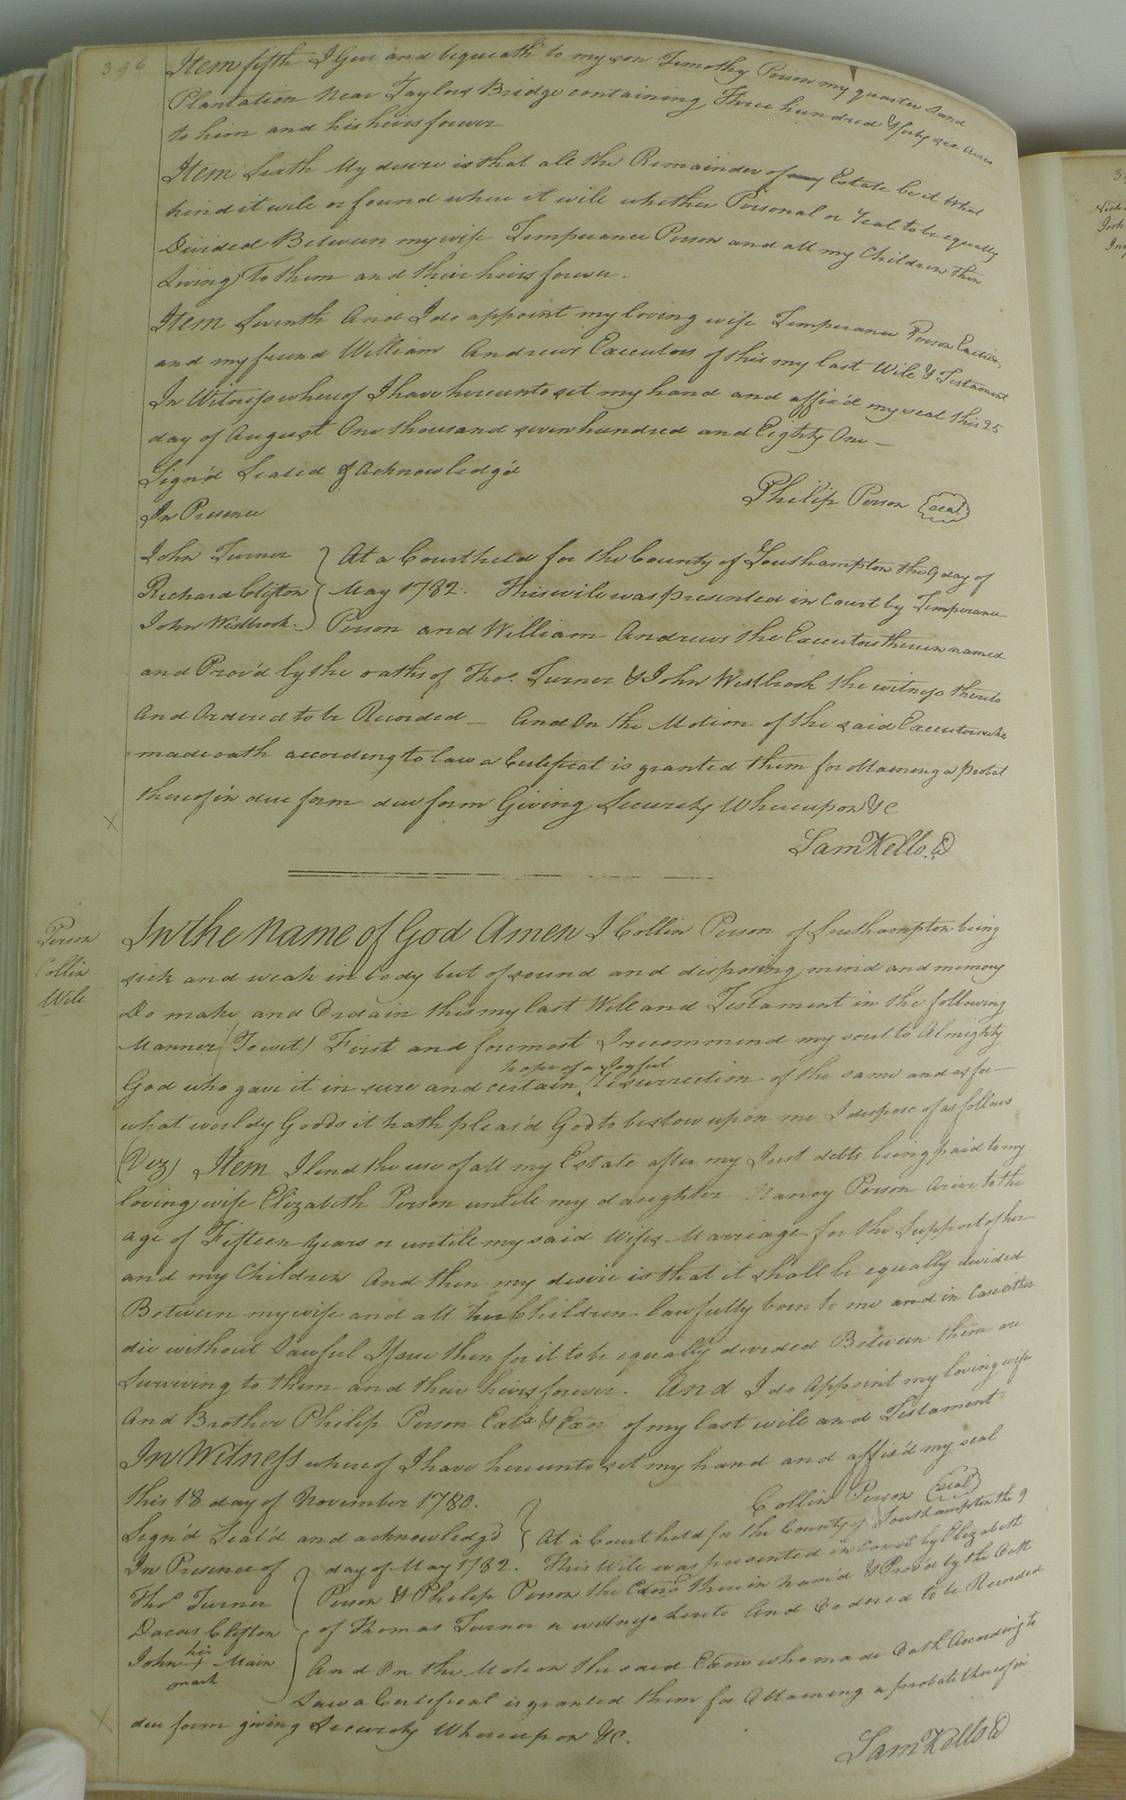 396
Item fifth I Give and bequeath to my son Timothy Person my quarter Land
Plantation Near Taylors Bridge containing Three hundred & forty six Acres
to him and his heirs forever
Item Sixth My desire is that all the Remainder of my Estate be it What
kind it will or found where it will whether Personal or Real to be equally
Divided Between my wife Temperance Person and all my Children then
Living To them and their heirs forever.
Item Seventh And I do appoint my loving wife Temperance Person
and my friend William Andrews Executors of this my last Will & Testament
In Witness whereof I have hereunto set my hand and affix'd my seal this 25
day of August One thousand seven hundred and Eighty One —
Sign'd Sealed & Acknowledg'd
In Presence
Philip Person seal
John Turner
Richard Clifton
John Westbrook.
At a Court held for the County of Southampton the 9 day of
May 1782. This will was presented in Court by Temperance
Person and William Andrews the Executors therein named
and Prov'd by the oaths of Thos. Turner & John Westbrook the witness thereto
And Ordered to be Recorded — And On the Motion of the said Executors who
made oath according to law a Certificat is granted them for obtaining a Probat
thereof in due form due form Giving Security Whereupon &c
X
Sam Kello. C
Person
Collin
Will
In the Name of God Amen I Collin Person of Southampton being
sick and weak in body but of sound and disposing mind and memory
Do make and Ordain this my last Will and Testament in the following
Manner (Towit) First and foremost I recommend my soul to Almighty
hope of a Joyful
God who gave it in sure and certain ‸ resurrection of the same and as for
what worldy Goods it hath pleas'd God to bestow upon me I dispose of as follows
(Viz) Item I lend the use of all my Estate after my Just debts being paid to my
loving wife Elizabeth Person untill my daughter Nancy Person Arive to the
age of Fifteen years or untill my said Wifes Marriage for the Support of her
and my Children And then my desire is that it shall be equally divided
Between my wife and all her Children lawfully born to me and in Case either
die without Lawful Issue then for it to be equally divided Between them
Surviving to them and their heirs forever. And I do Appoint my loving wife
And Brother Philip Person Exts & Exr of my last will and Testament
In Witness whereof I have hereunto set my hand and affix'd my seal
this 18 day of November 1780.
Collin Person seal
Sign'd Seal'd and acknowledg'd
In Presence of
Thos Turner
Dacus Clifton
his
John + Main
mark
At a Court held for the County of Southampton the 9
day of May 1782. This Will was presented in Court by Elizabeth
Person & Philip Person the Exors therein nam'd & Prov'd by the Oath
of Thomas Turner a witness hereto And Ordered to be Recorded
And On the Motion the said Exors who made Oath According to
Law a Certificat is granted them for Attaining a probate thereof in
due form giving Security Whereupon &c.
X
Sam Kello C